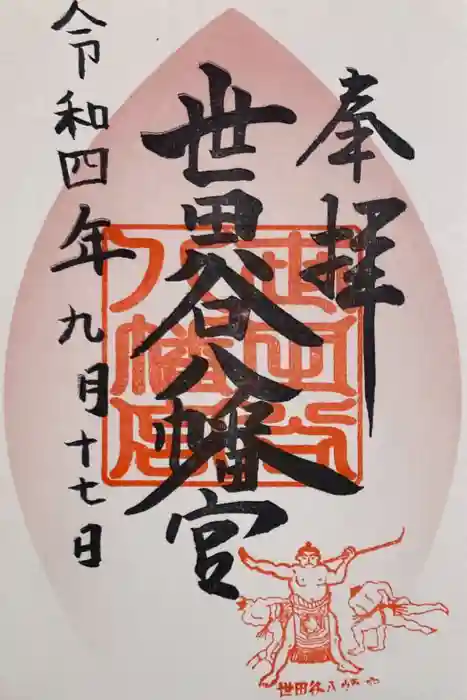 奉拝
世田谷八幡宮
令和四年九月十七日
世田谷八幡宮
世田谷八幡宮